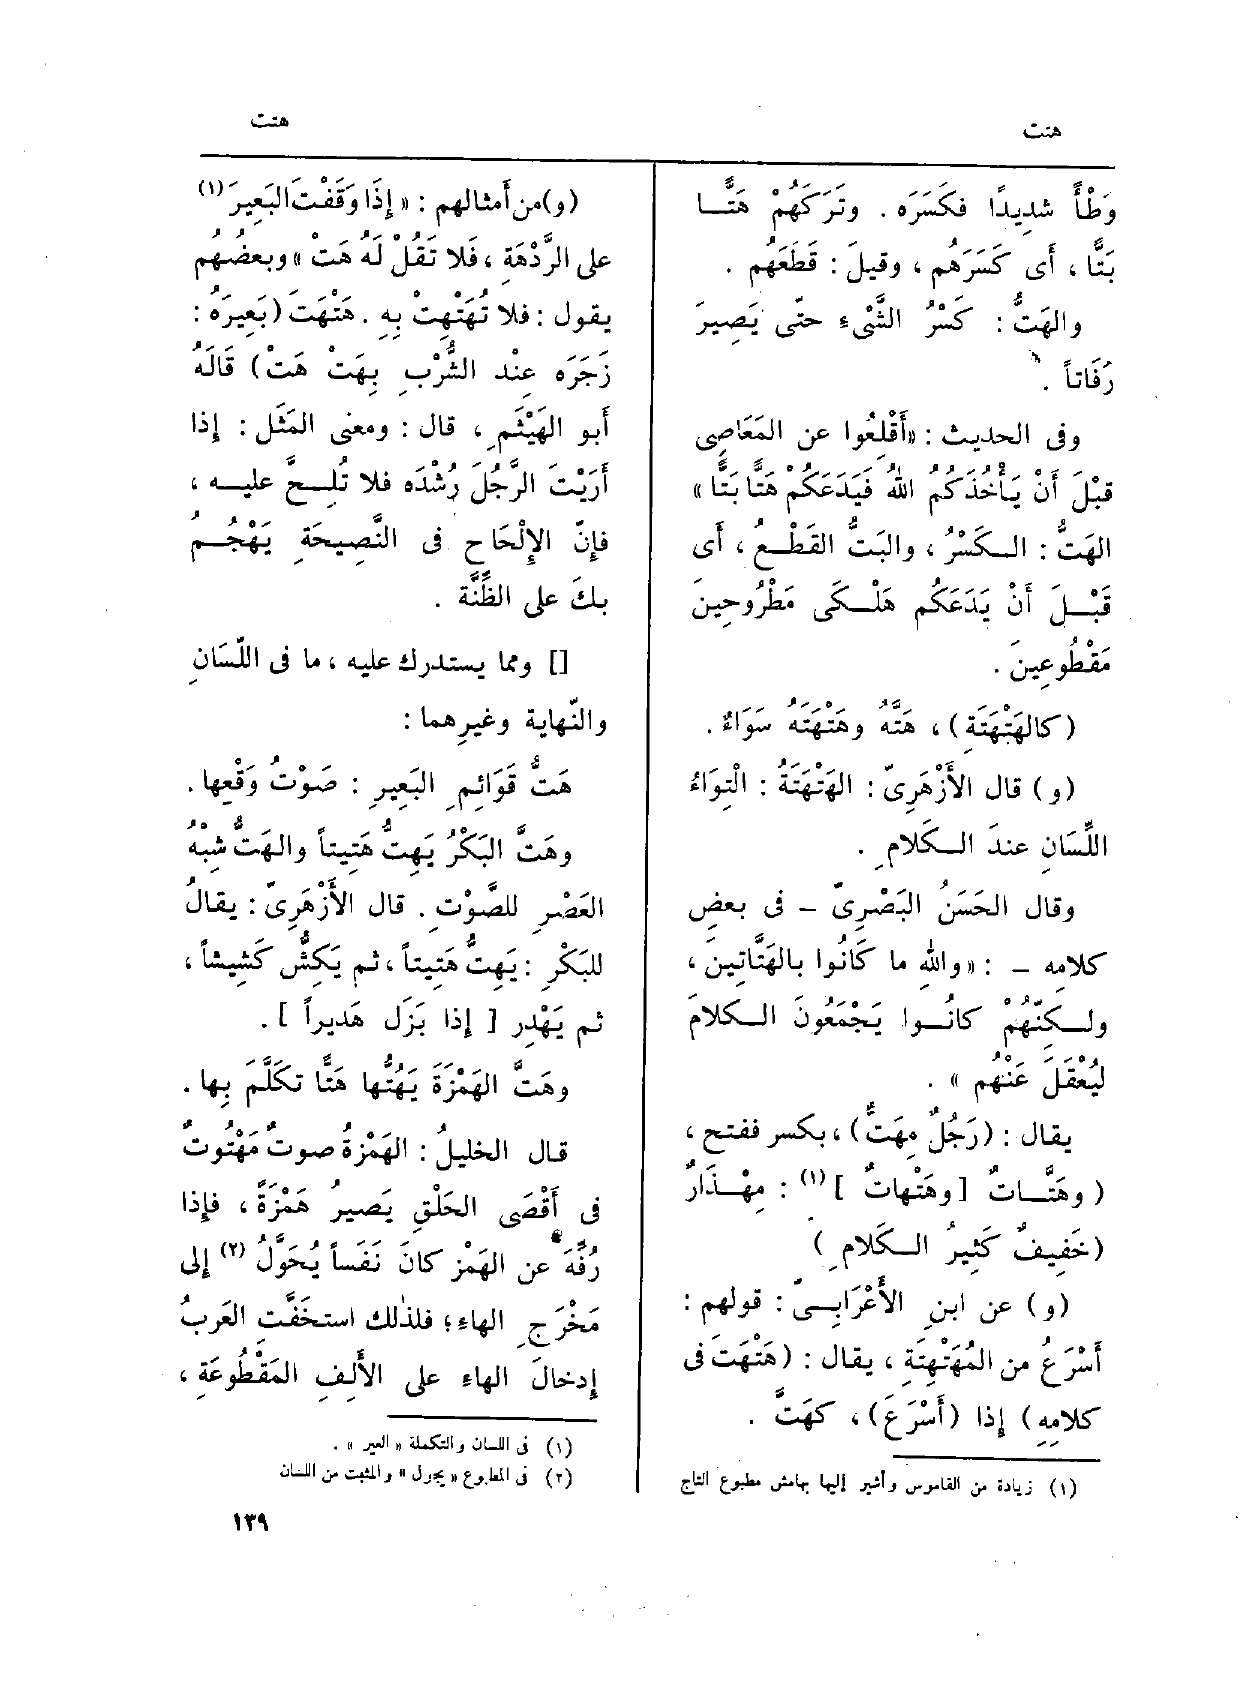 هتت
هتت
وَطْأً شديدًا فكَسَرَه . وتَرَكَهُمْ هَتًّا
بَتًّا ، أى كَسَرَهم ، وقيلَ : قَطَعَهُم .
والهَتُّ : كَسْرُ الشَّىْء حتّى يَصِيرَ
رُفَاتاً .
وفى الحديث : «أَقْلِعُوا عن المَعَاصِى
قبْلَ أَنْ يَأْخُذَكُمُ اللهُ فيَدَعَكُمْ هَتًّا بَتًّا»
الهَتُّ : الكَسْرُ ، والبَتُّ القَطْعُ ، أَى
قَبْلَ أَنْ يَدَعَكُم هَلْكَى مَطْرُوحِينَ
مَقْطُوعِينَ .
(كالهَتْهَتَةِ) ، هَتَّهُ وهَتْهَتَهُ سَوَاءٌ .
(و) قال الأَزْهَرِىّ : الهَتْهَتَةُ : الْتِوَاءُ
اللِّسَانِ عندَ الكَلامِ .
وقال الحَسَنُ البَصْرِىّ – فى بعضِ
كلامِه – : «والله ما كَانُوا بالهَتَّاتِينَ ،
ولكنَّهُمْ كانُوا يَجْمَعُونَ الكلامَ
لِيُعْقَلَ عَنْهُم » .
يقال : (رَجُلٌ مِهَتٌّ) ، بكسر ففتح ،
(وهَتَّاتٌ [وهَتْهاتٌ ] (١) : مِهْذَارٌ
(خَفِيفٌ كَثِيرُ الكَلامِ )
(و) عن ابنِ الأَعْرَابِىّ : قولهم :
أَسْرَعُ من المُهَتْهِتَةِ ، يقال : (هَتْهَتَ فى
كلامِهِ) إذا (أَسْرَعَ) ، كهَتَّ .
(١) زيادة من القاموس وأشير إليها بهامش مطبوع التاج
(و)من أَمثالهم : «إِذَا وَقَفْتَ البَعِيرَ (١)
على الرَّدْهَةِ ، فَلا تَقُلْ لَهُ هَتْ» وبعضُهم
يقول : فلا تُهَتْهِتْ به . هَتْهَتَ (بَعِيرَهُ :
زَجَرَه عِنْد الشُّرْبِ بِهَتْ هَتْ) قَالَهُ
أَبو الهَيْثَمِ ، قال : ومعنى المَثَل : إِذا
أَرَيْتَ الرَّجُلَ رُشْدَه فلا تُلِحَّ عليه ،
فإِنّ الإِلْحَاحَ فى النَّصِيحَةِ يَهْجُمُ
بكَ على الظِّنَّة .
[] ومما يستدرك عليه ، ما فى اللّسَانِ
والنّهاية وغيرِهما :
هَتُّ قَوَائمِ البَعِيرِ : صَوْتُ وَقْعِها .
وهَتَّ البَكْرُ يَهِتُّ هَتِيتاً والهَتُّ شِبْهُ
العَصْرِ للصَّوْتِ . قال الأَزْهَرِىّ : يقالُ
للبَكْرِ : يَهِتُّ هَتِيتاً ، ثم يَكِشُّ كَشِيشاً ،
ثم يَهْدِر [ إذا بَزَل هَدِيراً ] .
وهَتَّ الهَمْزَةَ يَهُتُّها هَتًّا تكلَّمَ بِها .
قال الخليلُ : الهَمْزةُ صوتٌ مَهْتُوتٌ
فى أَقْصَى الحَلْقِ يَصيرُ هَمْزَةً ، فإِذا
رُفِّهَ عن الهَمْزِ كانَ نَفَساً يُحَوَّلُ (٢) إلى
مَخْرَجِ الهاءِ ؛ فلذٰلك استخَفَّت العَربُ
إدخالَ الهاءِ على الأَلِفِ المَقْطُوعَةِ ،
(١) فى اللسان والتكملة «العير» .
(٢) فى المطبوع «يجول» والمثبت من اللسان
١٣٩